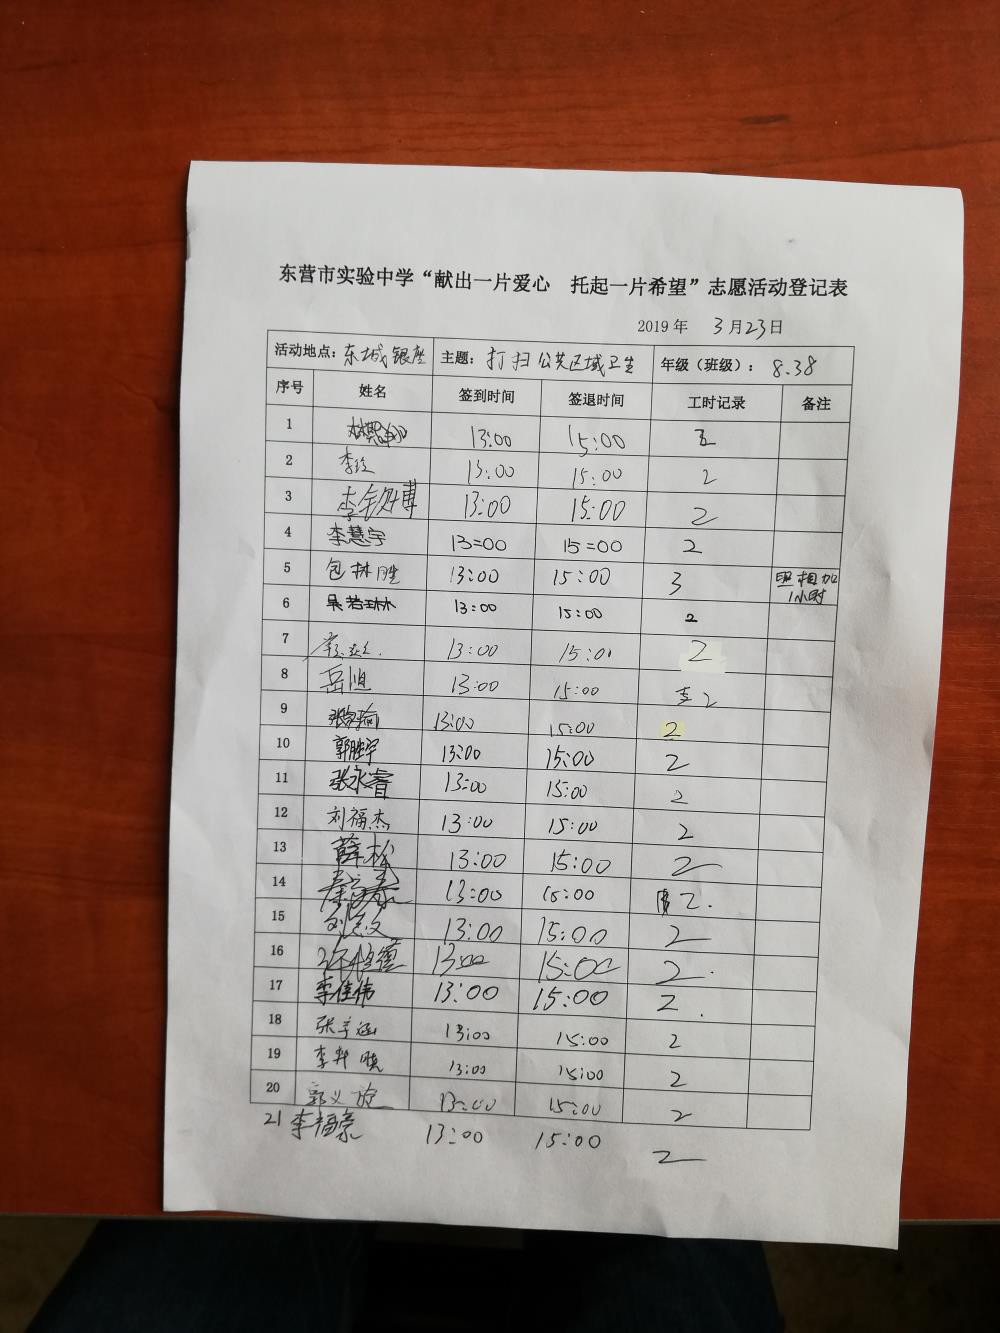 东营市实验中学“献出一片爱心 托起一片希望”志愿活动登记表
2019年 3月23日
活动地点：东城银座 主题：打扫公共区域卫生 年级（班级）：8.38
序号 姓名 签到时间 签退时间 工时记录 备注
1 13:00 15:00
2 13:00 15:00 2
3 13:00 15:00 2
4 李慧宇 13:00 15:00 2
5 包林胜 13:00 15:00 3 照相加1小时
6 吴若琳 13:00 15:00 2
7 13:00 15:00 2
8 岳 13:00 15:00 2
9 张 13:00 15:00 2
10 郭胜宇 13:00 15:00 2
11 张永睿 13:00 15:00 2
12 刘福杰 13:00 15:00 2
13 薛松 13:00 15:00 2
14 13:00 15:00 2.
15 刘 13:00 15:00 2
16 13:00 15:00 2.
17 李佳伟 13:00 15:00 2.
18 张宇涵 13:00 15:00 2
19 李邦晓 13:00 15:00 2
20 郭义 13:00 15:00 2
21 李福豪 13:00 15:00 2